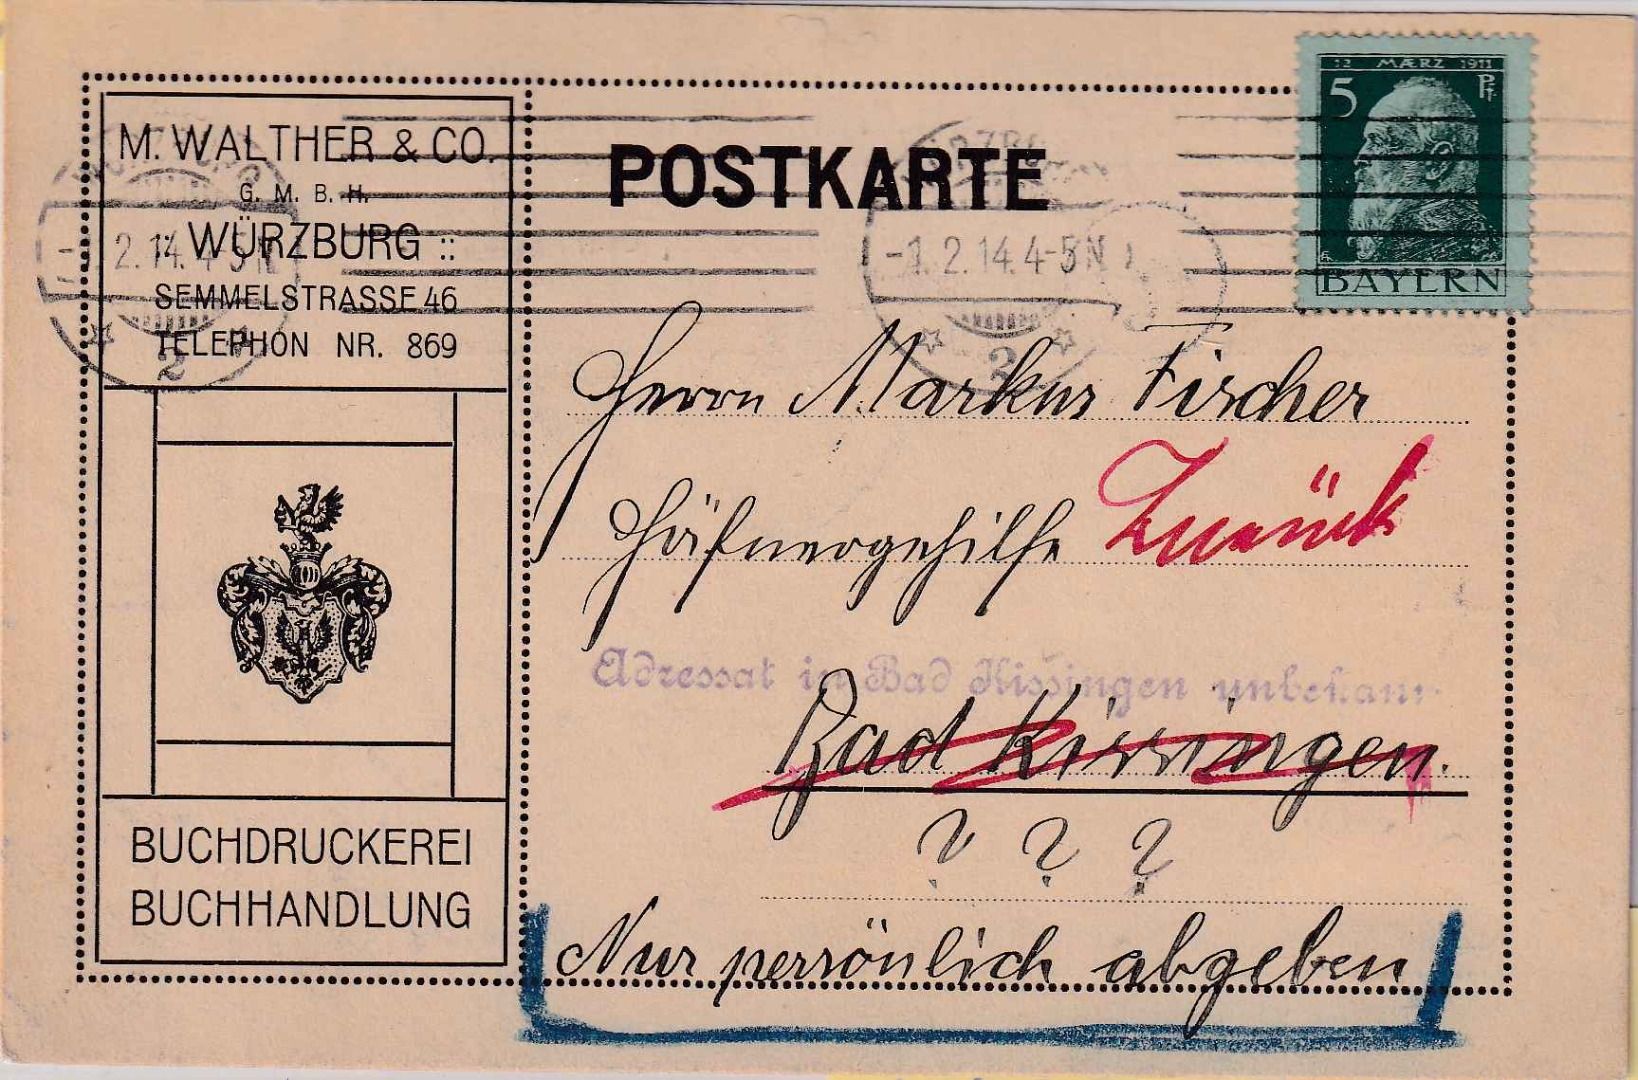 M. WALTHER & CO.
G. M. B. H.
:: WÜRZBURG ::
SEMMELSTRASSE 46
TELEPHON NR. 869
BUCHDRUCKEREI
BUCHHANDLUNG
POSTKARTE
12 MÆRZ 1911
5 Pf
BAYERN
2.14. 4-5 N
2
-1.2.14. 4-5 N
2
Herrn Markus Fischer
Häfnergehilfe Zurück
Adressat in Bad Kissingen unbekannt
Bad Kissingen.
? ? ?
Nur persönlich abgeben